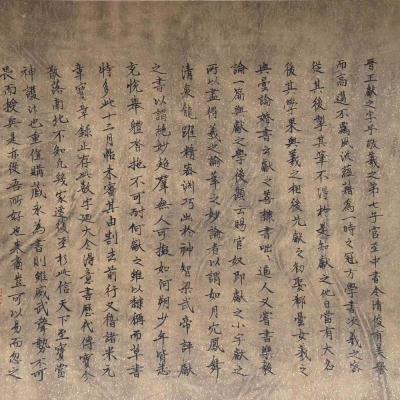 晋王獻之字子敬羲之第七子官至中書令清俊有美譽
而高邁不羈風流蘊藉為一時之冠方學書次羲之密
從其後掣其筆不得於是知獻之他日當有大名
後其學果與羲之相後先獻之初娶郗曇女羲之
與曇論婚書言獻之善隸書咄逼人又嘗書樂毅
論一篇與獻之學後題云賜官奴即獻之小字獻之
所以盡得羲之論筆之妙論者以謂如丹穴鳳舞
清泉龍躍精密淵巧出於神智梁武帝評獻
之書以謂絕妙超群無人可擬如河朔少年皆悉
充悅舉體沓拖不可耐何獻之雖以隸稱而草書
特多此十二月帖未審其由割去前行又借諸米元
章寶章錄止存此數字也大令得意書歷代傳寶今
散落南北不知凡幾家後至於此信天下至寶當
神護以也重值購藏永為書則雖威武聲勢不可
畏而授與是亦從吾所好也來裔豈可以易而忽之